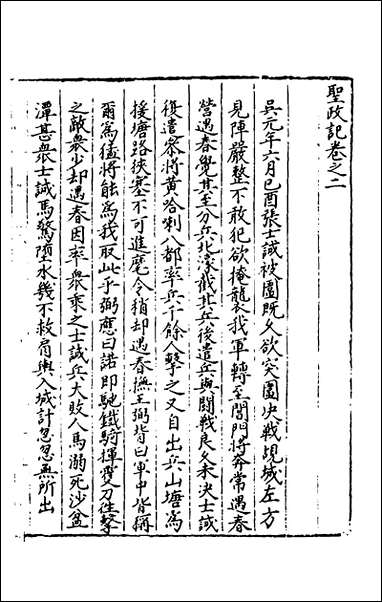 聖政記卷之二
吳元年六月己酉張士誠被圍既久欲突圍决戰覘城左方
見陣嚴整不敢犯欲掩襲我軍轉至閶門將奔常遇春
營遇春覺其至分兵北濠截其兵後遣兵與鬪戰良久未决士誠
復遣叅將黃哈喇八都率兵千餘人擊之又自出兵山塘爲
援塘路狹塞不可進麾令稍却遇春撫王弼背曰軍中皆稱
爾爲猛將能爲我取此乎弼應曰諾即馳鐵騎揮雙刀徃擊
之敵衆少却遇春因率衆乘之士誠兵大敗人馬溺死沙盆
潭甚衆士誠馬驚墮水幾不救肩輿入城計忽忽無所出